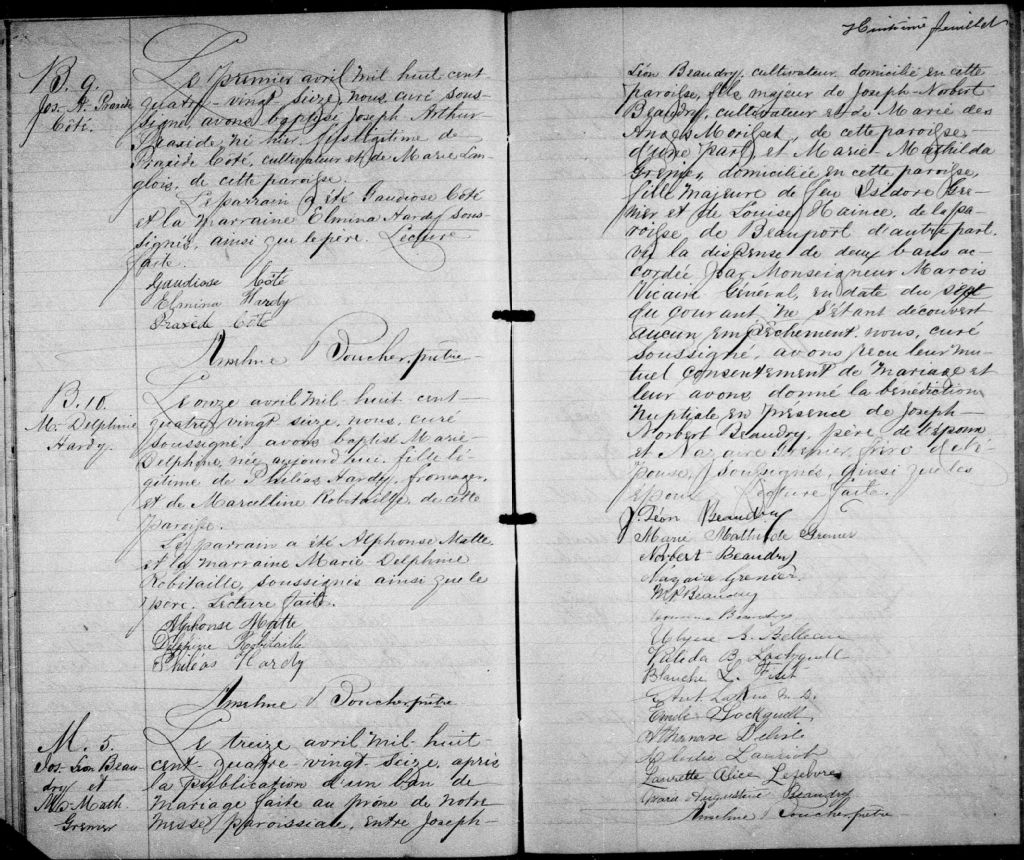 B. 9.
Jos. A. Praxède
Côté.
Le premier avril mil huit cent
quatre-vingt seize, nous, curé sous-
signé, avons baptisé Joseph Arthur
Praxède, né hier, fils légitime de
Praxède Côté, cultivateur et de Marie Lan-
glois, de cette paroisse.
Le parrain a été Gaudiose Côté
et la marraine Elmina Hardy sous-
signés, ainsi que le père. Lecture
faite.
Gaudiose Côté
Elmina Hardy
Praxède Côté
Anselme Boucher, ptre
B. 10.
M. Delphine
Hardy.
Le onze avril mil huit cent-
quatre vingt seize, nous, curé
soussigné avons baptisé Marie-
Delphine, née aujourd'hui, fille lé-
gitime de Philéas Hardy, fromager,
et de Marcelline Robitaille, de cette
paroisse.
Le parrain a été Alphonse Matte
et la marraine Marie Delphine
Robitaille, soussignés ainsi que le
père. Lecture faite.
Alphonse Matte
Delphine Robitaille
Philéas Hardy
Anselme Boucher, ptre
M. 5.
Jos. Léon Beau-
dry et
M. Math.
Grenier
Le treize avril mil huit-
cent-quatre-vingt-seize, après
la publication d'un ban de
mariage faite au prône de notre
messe paroissiale, entre Joseph-
Huitième feuillet
Léon Beaudry, cultivateur domicilié en cette
paroisse, fils majeur de Joseph-Norbert
Beaudry, cultivateur et de Marie des
Anges Morisset, de cette paroisse,
d'une part, et Marie Mathilda
Grenier, domiciliée en cette paroisse,
fille majeure de feu Isidore Gre-
nier et de Louise Haince, de la pa-
roisse de Beauport d'autre part.
vu la dispense de deux bans ac-
cordée par Monseigneur Marois
Vicaire Général, en date du sept
du courant ne s'étant découvert
aucun empêchement, nous, curé
soussigné, avons reçu leur mu-
tuel consentement de mariage et
leur avons donné la bénédiction
nuptiale en présence de Joseph-
Norbert Beaudry, père de l'époux
et Nazaire Grenier, frère de l'é-
pouse, soussignés, ainsi que les
époux. Lecture faite.
J. Léon Beaudry
Marie Mathilde Grenier
Norbert Beaudry
Nazaire Grenier
Beaudry
Beaudry
Ulysse A. Belleau
Valéda B.
Blanche L. Fiset
Ant. LaRue
Emile
Athanase Delisle
Lauriot
Laurette Alice Lefebvre
Marie Augustine Beaudry
Anselme Boucher, ptre